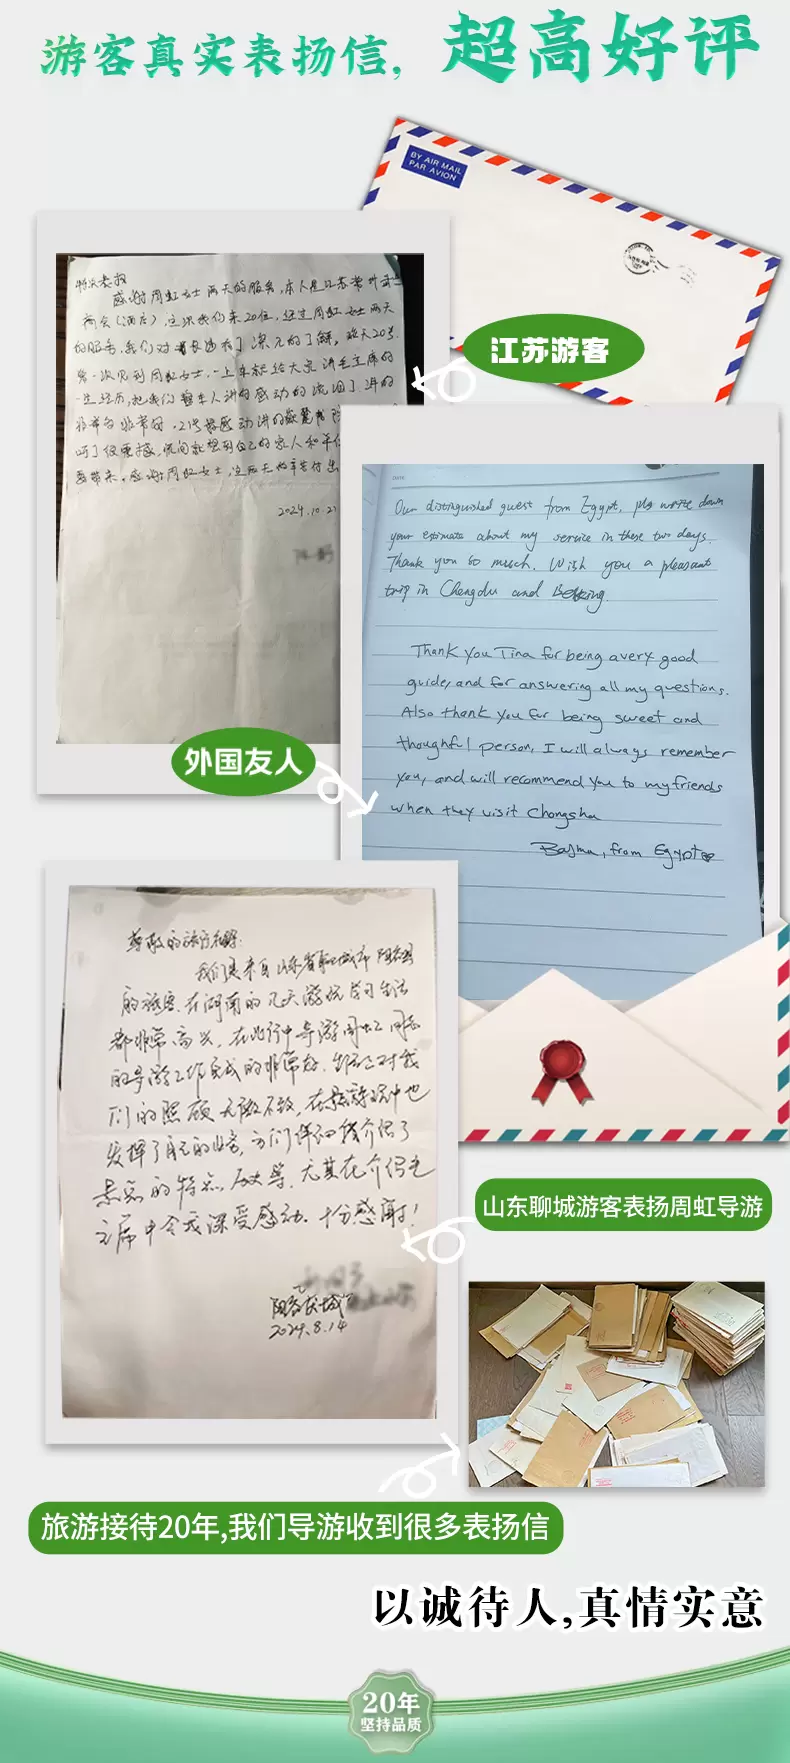 游客真实表扬信，超高好评
BY AIR MAIL
PAR AVION
江苏游客
特次表扬
感谢周虹女士两天的服务，本人是江苏常州
商会（酒店），这次我们来20位，经过周虹女士两天
的服务，我们对长沙有了深入的了解，昨天20号
第一次见到周虹女士，一上车就给大家讲毛主席的
一生经历，把我们整车人讲的感动的流泪了，讲的
非常的非常好，21号
听了很震撼，瞬间就想到自己的家人和
感谢周虹女士，这两天的辛苦付出
2024.10.21
外国友人
DATE
Our distinguished guest from Egypt, pls write down
your estimate about my service in these two days.
Thank you so much. Wish you a pleasant
trip in Chengdu and
Thank you Tina for being a very good
guide, and for answering all my questions.
Also thank you for being sweet and
thoughtful person, I will always remember
you, and will recommend you to my friends
when they visit Chongsha
from Egypt
尊敬的旅行社领导：
我们是来自山东省聊城市阳谷县
的旅客，在湖南的几天游玩学习生活
都非常高兴，在此行中导游周虹同志
的导游工作完成的非常好，生活上对我
们的照顾无微不致，在景点游玩中也
发挥了自己的业务，为们详细的介绍了
景点的特点、历史等，尤其在介绍毛
主席中令我深受感动，十分感谢！
2024.8.14
山东聊城游客表扬周虹导游
旅游接待20年,我们导游收到很多表扬信
以诚待人,真情实意
20年
坚持品质